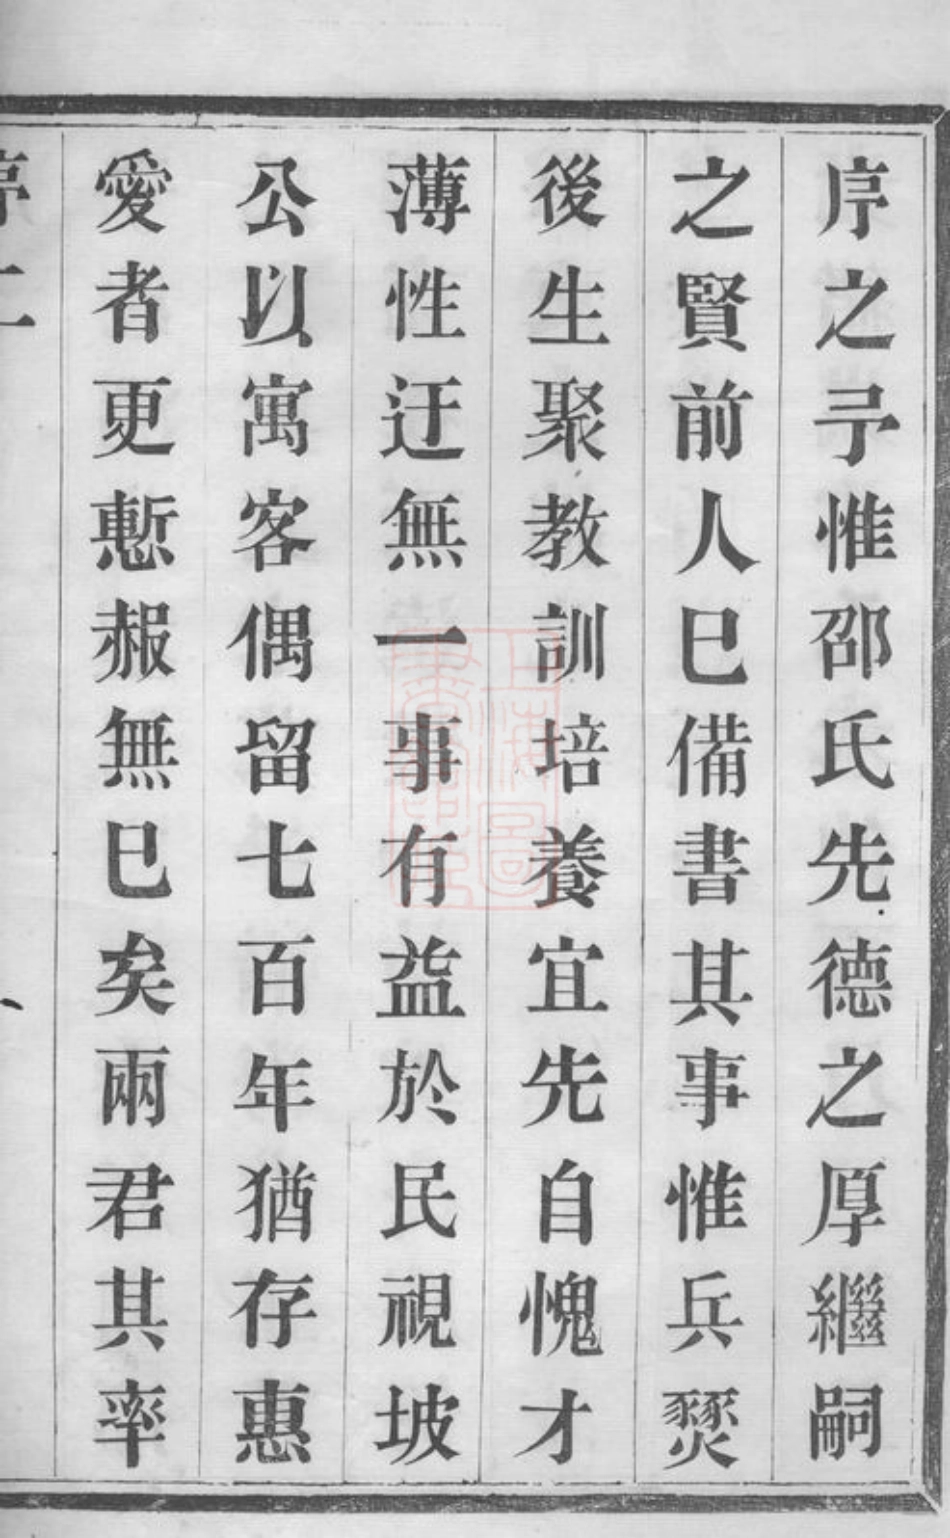 序之予惟邵氏先德之厚繼嗣
之賢前人巳備書其事惟兵燹
後生聚教訓培養宜先自愧才
薄性迂無一事有益於民視坡
公以寓客偶留七百年猶存惠
愛者更慙赧無巳矣兩君其率
序 二
上海圖書館藏